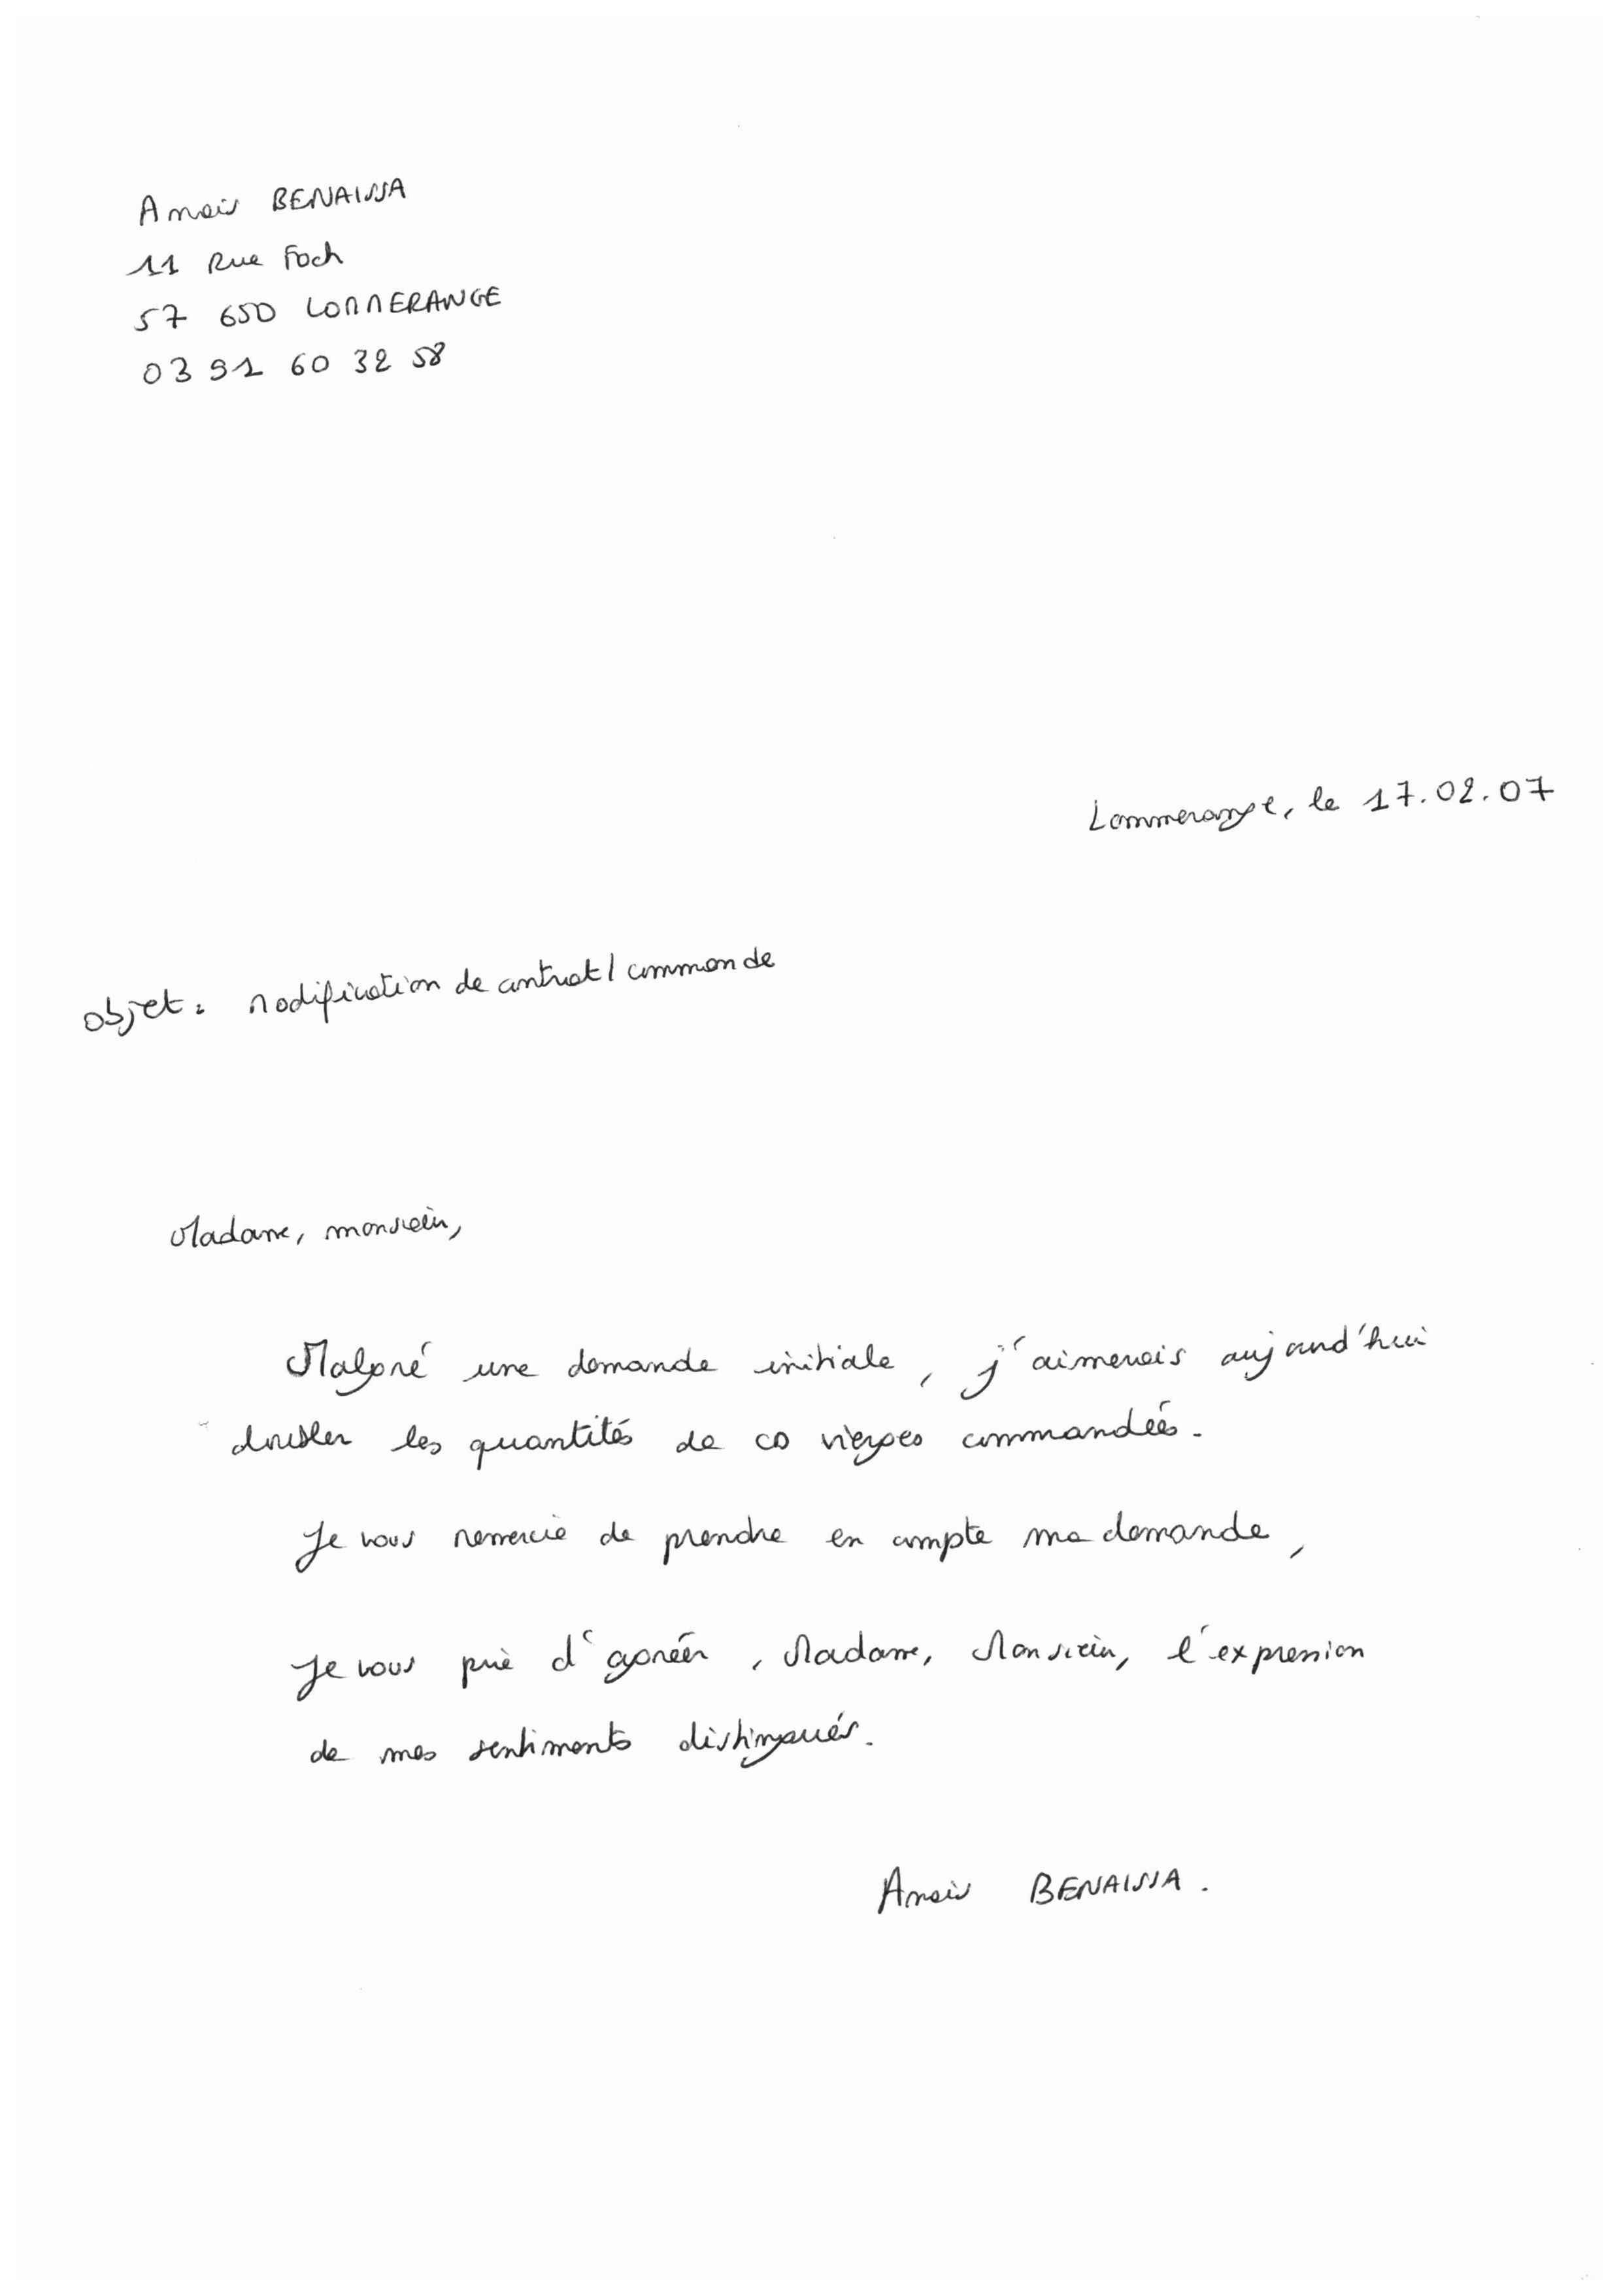 Anaïs BENAISSA
11 Rue Foch
57 650 LOMMERANGE
03 91 60 32 58
Lommerange, le 17.02.07
Objet : Modification de contrat / commande
Madame, monsieur,
Malgré une demande initiale, j'aimerais aujourd'hui
doubler les quantités de CD vierges commandées.
Je vous remercie de prendre en compte ma demande,
Je vous prie d'agréer, Madame, Monsieur, l'expression
de mes sentiments distingués.
Anaïs BENAISSA.